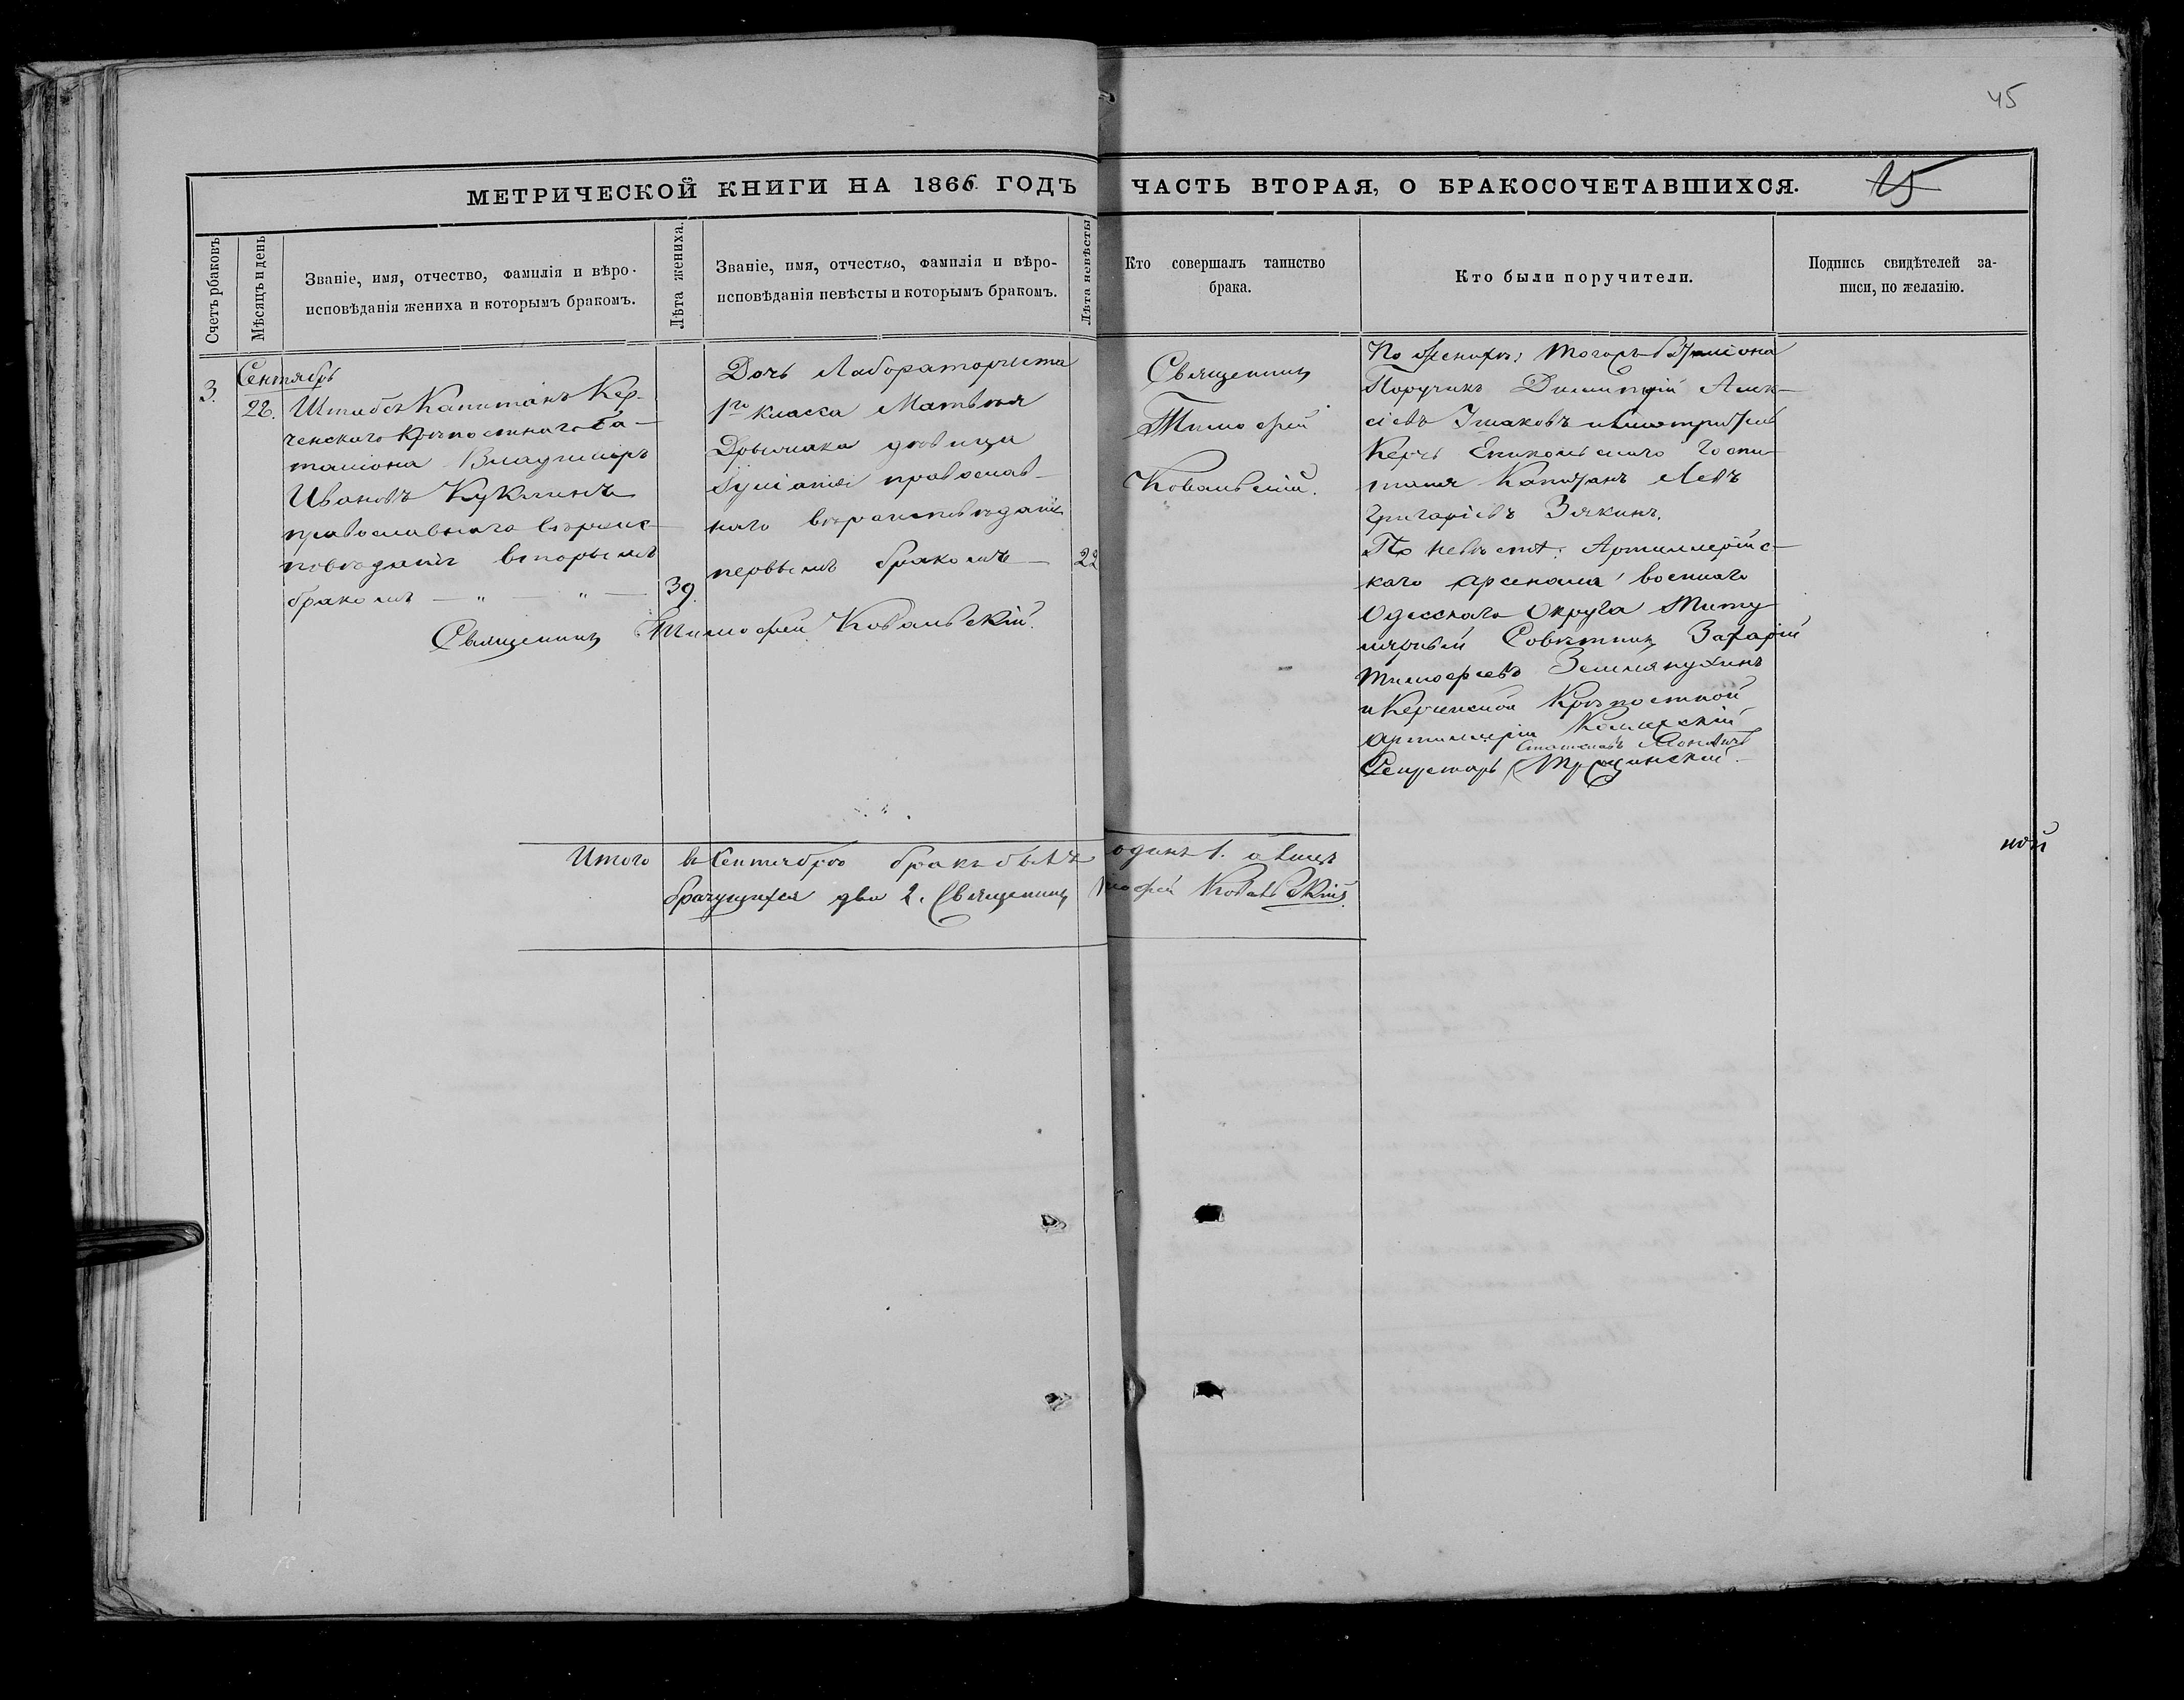 45
МЕТРИЧЕСКОЙ КНИГИ НА 1866 ГОДЪ ЧАСТЬ ВТОРАЯ, О БРАКОСОЧЕТАВШИХСЯ.
25
Счетъ браковъ
Мѣсяцъ и день
Званіе, имя, отчество, фамилія и вѣро-
исповѣданія жениха и которымъ бракомъ.
Лѣта жениха.
Званіе, имя, отчество, фамилія и вѣро-
исповѣданія невѣсты и которымъ бракомъ.
Лѣта невѣсты
Кто совершалъ таинство
брака.
Кто были поручители.
Подпись свидѣтелей за-
писи, по желанію.
3.
Сентябрь
22.
Штабсъ Капитанъ Кер-
ченскаго Крѣпостнаго ба-
таліона Владиміръ
Ивановъ Куклинъ
православнаго вѣроис-
повѣданія вторымъ
бракомъ — " — " —
39.
Дочь Лабораторчиста
1го класса Матвѣя
дѣвица
Іуліанія православ-
наго вѣроисповѣданія
первымъ бракомъ —
22
Священникъ Тимофей Ковальскій.
Священникъ
Тимофей
Ковальскій.
По женихѣ: тогожъ батліона
Поручикъ Димитрій Алек-
сіевъ и смотритель
Керчь Еникольскаго Госпи-
таля Капитанъ Левъ
Григоріевъ Зякинъ.
По невѣстѣ: Артиллерійс-
каго арсенала военнаго
Одесскаго Округа Титу-
лярный Совѣтникъ Захарій
Тимофеевъ Землянухинъ
и Керченской Крѣпостной
артиллеріи Колежскій
Секретарь
Итого въ Сентябрѣ бракъ былъ одинъ 1. а въ немъ
брачущихся два 2. Священникъ Тимофей Ковальскій.
ной